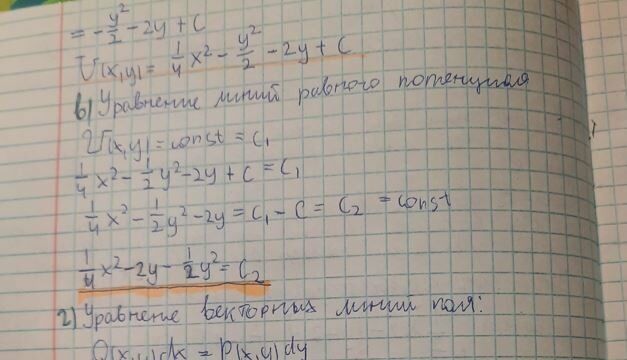 = -y²/2 - 2y + C
U(x,y) = 1/4 x² - y²/2 - 2y + C
в) Уравнение линий равного потенциала
U(x,y) = const = C₁
1/4 x² - 1/2 y² - 2y + C = C₁
1/4 x² - 1/2 y² - 2y = C₁ - C = C₂ = const
1/4 x² - 2y - 1/2 y² = C₂
г) Уравнение векторных линий поля:
Q(x,y)dx = P(x,y)dy